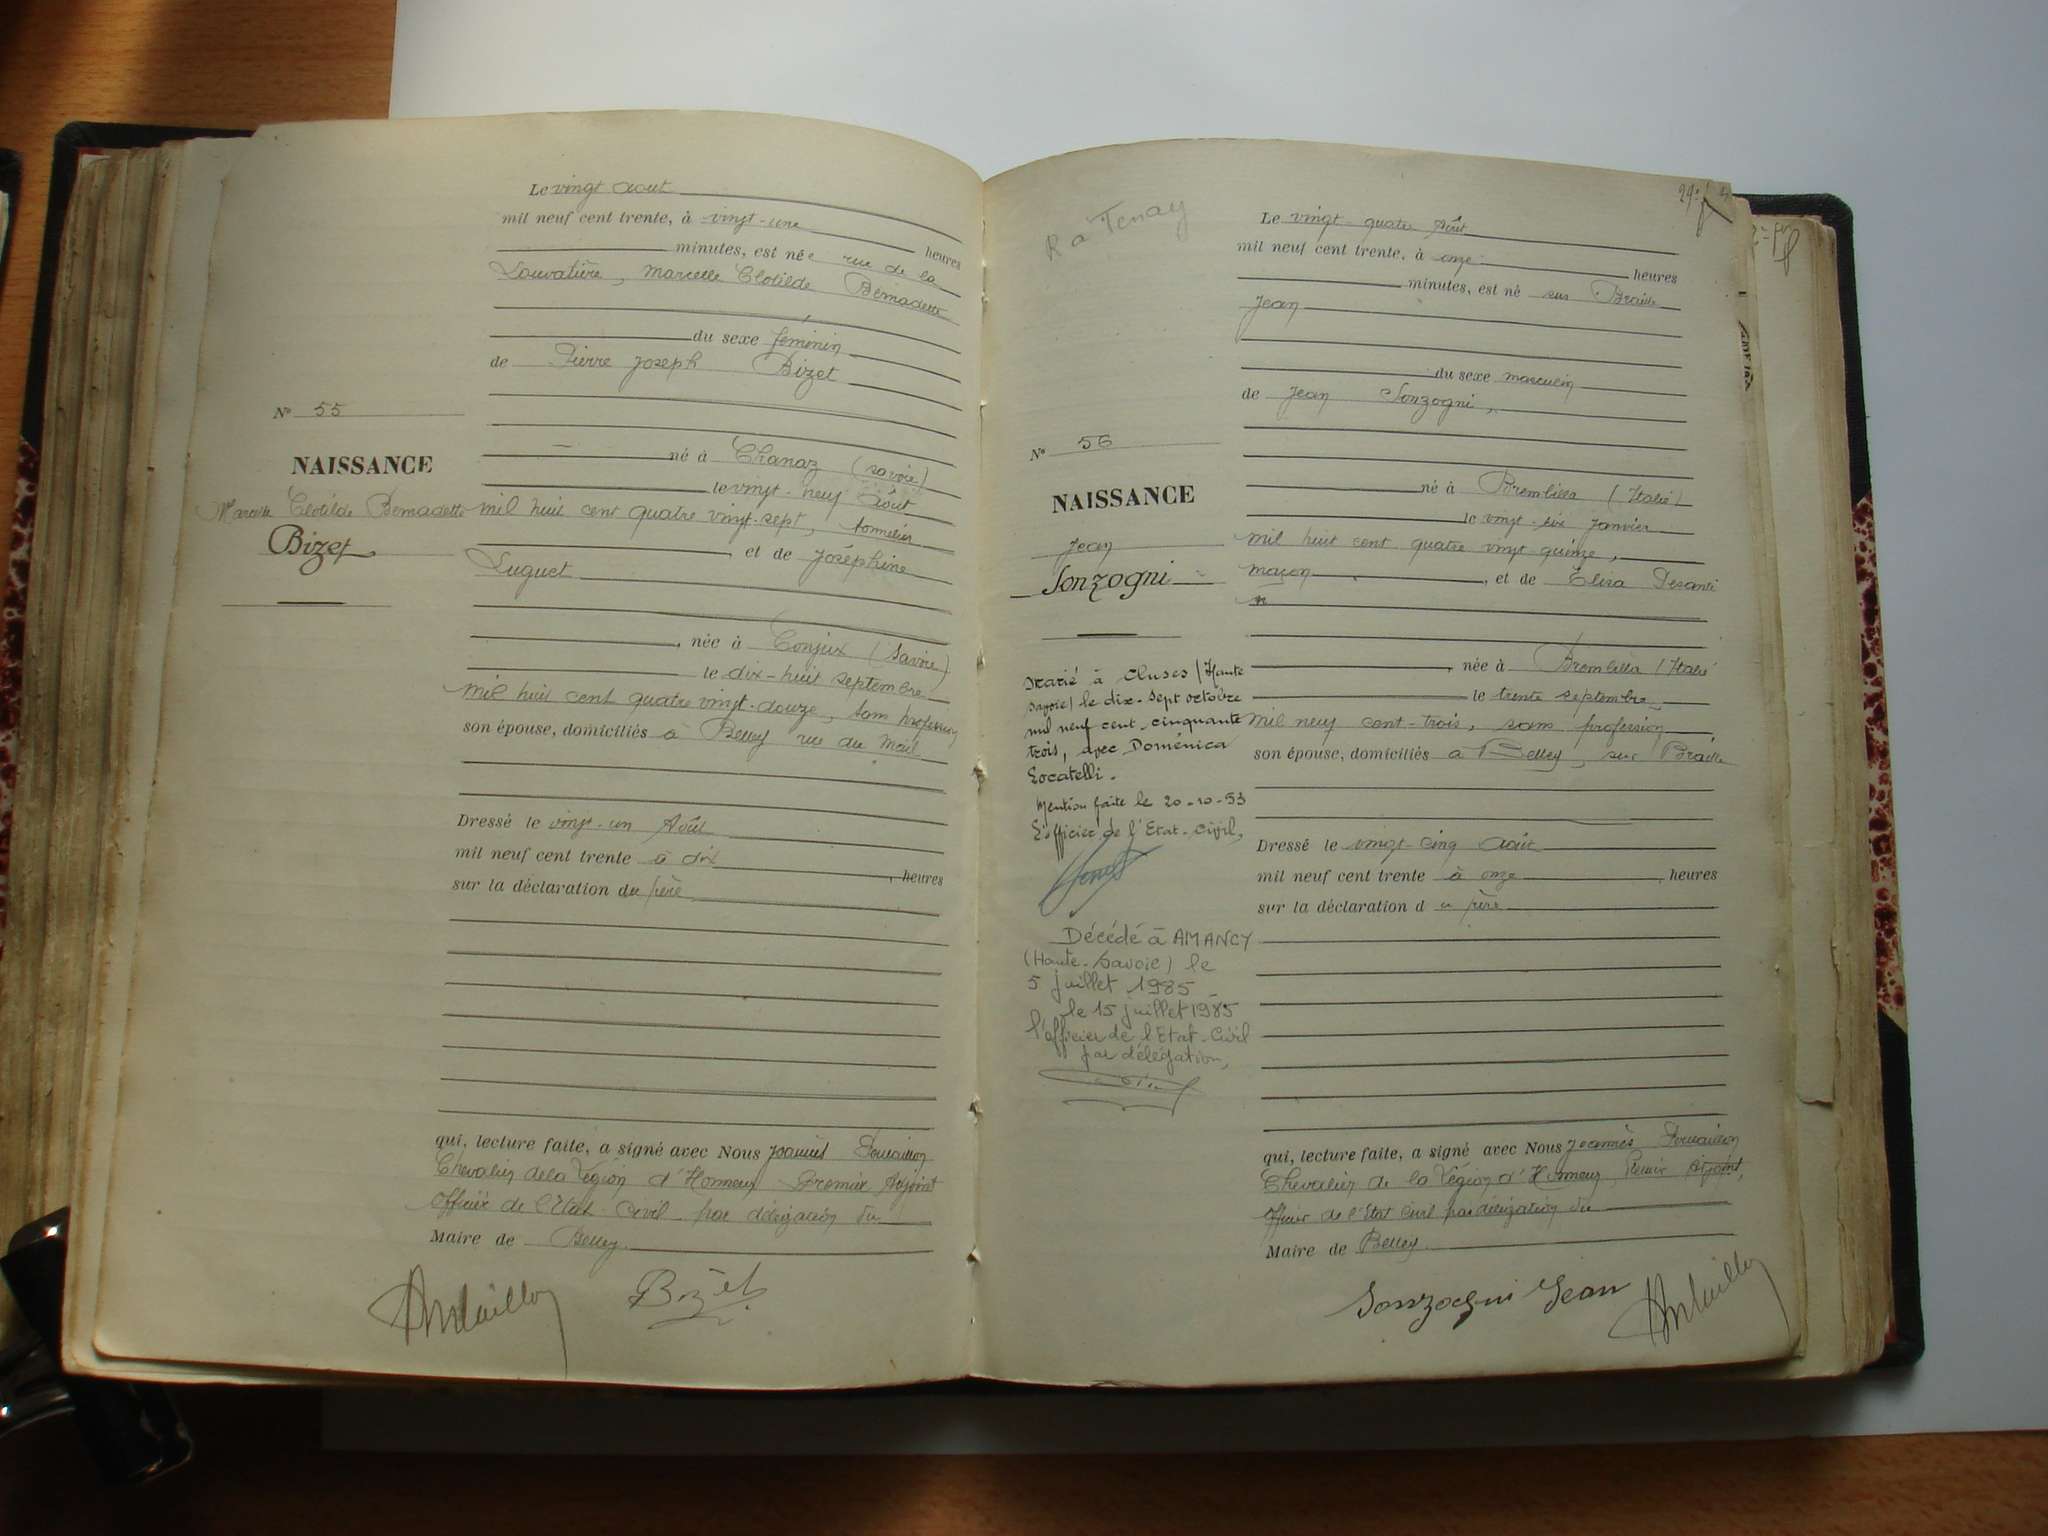 Le vingt aout
mil neuf cent trente, à vingt-une heures
minutes, est née rue de la
Louvatière, Marcelle Clotilde Bernadette
du sexe féminin
de Pierre Joseph Bizet
né à Chanaz (Savoie)
le vingt-neuf Août
mil huit cent quatre vingt-sept, tonnelier
et de Joséphine
Luguet
née à Conjux (Savoie)
le dix-huit septembre
mil huit cent quatre vingt-douze, sans profession
son épouse, domiciliés à Belley rue du Mail
Dressé le vingt-un Août
mil neuf cent trente à dix heures
sur la déclaration du père
qui, lecture faite, a signé avec Nous
Chevalier de la Légion d'Honneur Premier Adjoint
officier de l'Etat Civil par délégation du
Maire de Belley
Bizet
N° 55
NAISSANCE
Marcelle Clotilde Bernadette
Bizet
R a Tenay
N° 56
NAISSANCE
Jean
Sonzogni
Marié à Cluses (Haute
Savoie) le dix-sept octobre
mil neuf cent cinquante
trois, avec Doménica
Locatelli.
Mention faite le 20-10-53
L'officier de l'Etat-Civil,
Décédé à AMANCY
(Haute-Savoie) le
5 juillet 1985
le 15 juillet 1985
l'officier de l'Etat-Civil
par délégation,
Le vingt-quatre Août
mil neuf cent trente, à onze heures
minutes, est né sur Braille
Jean
du sexe masculin
de Jean Sonzogni,
né à Brembilla (Italie)
le vingt-six janvier
mil huit cent quatre vingt-quinze,
maçon, et de Elisa Pesenti
née à Brembilla (Italie
le trente septembre
mil neuf cent-trois, sans profession
son épouse, domiciliés à Belley, sur Braille
Dressé le vingt-cinq août
mil neuf cent trente à onze, heures
sur la déclaration du père
qui, lecture faite, a signé avec Nous
Chevalier de la Légion d'Honneur, Premier Adjoint,
officier de l'Etat Civil par délégation du
Maire de Belley
Sonzogni Jean